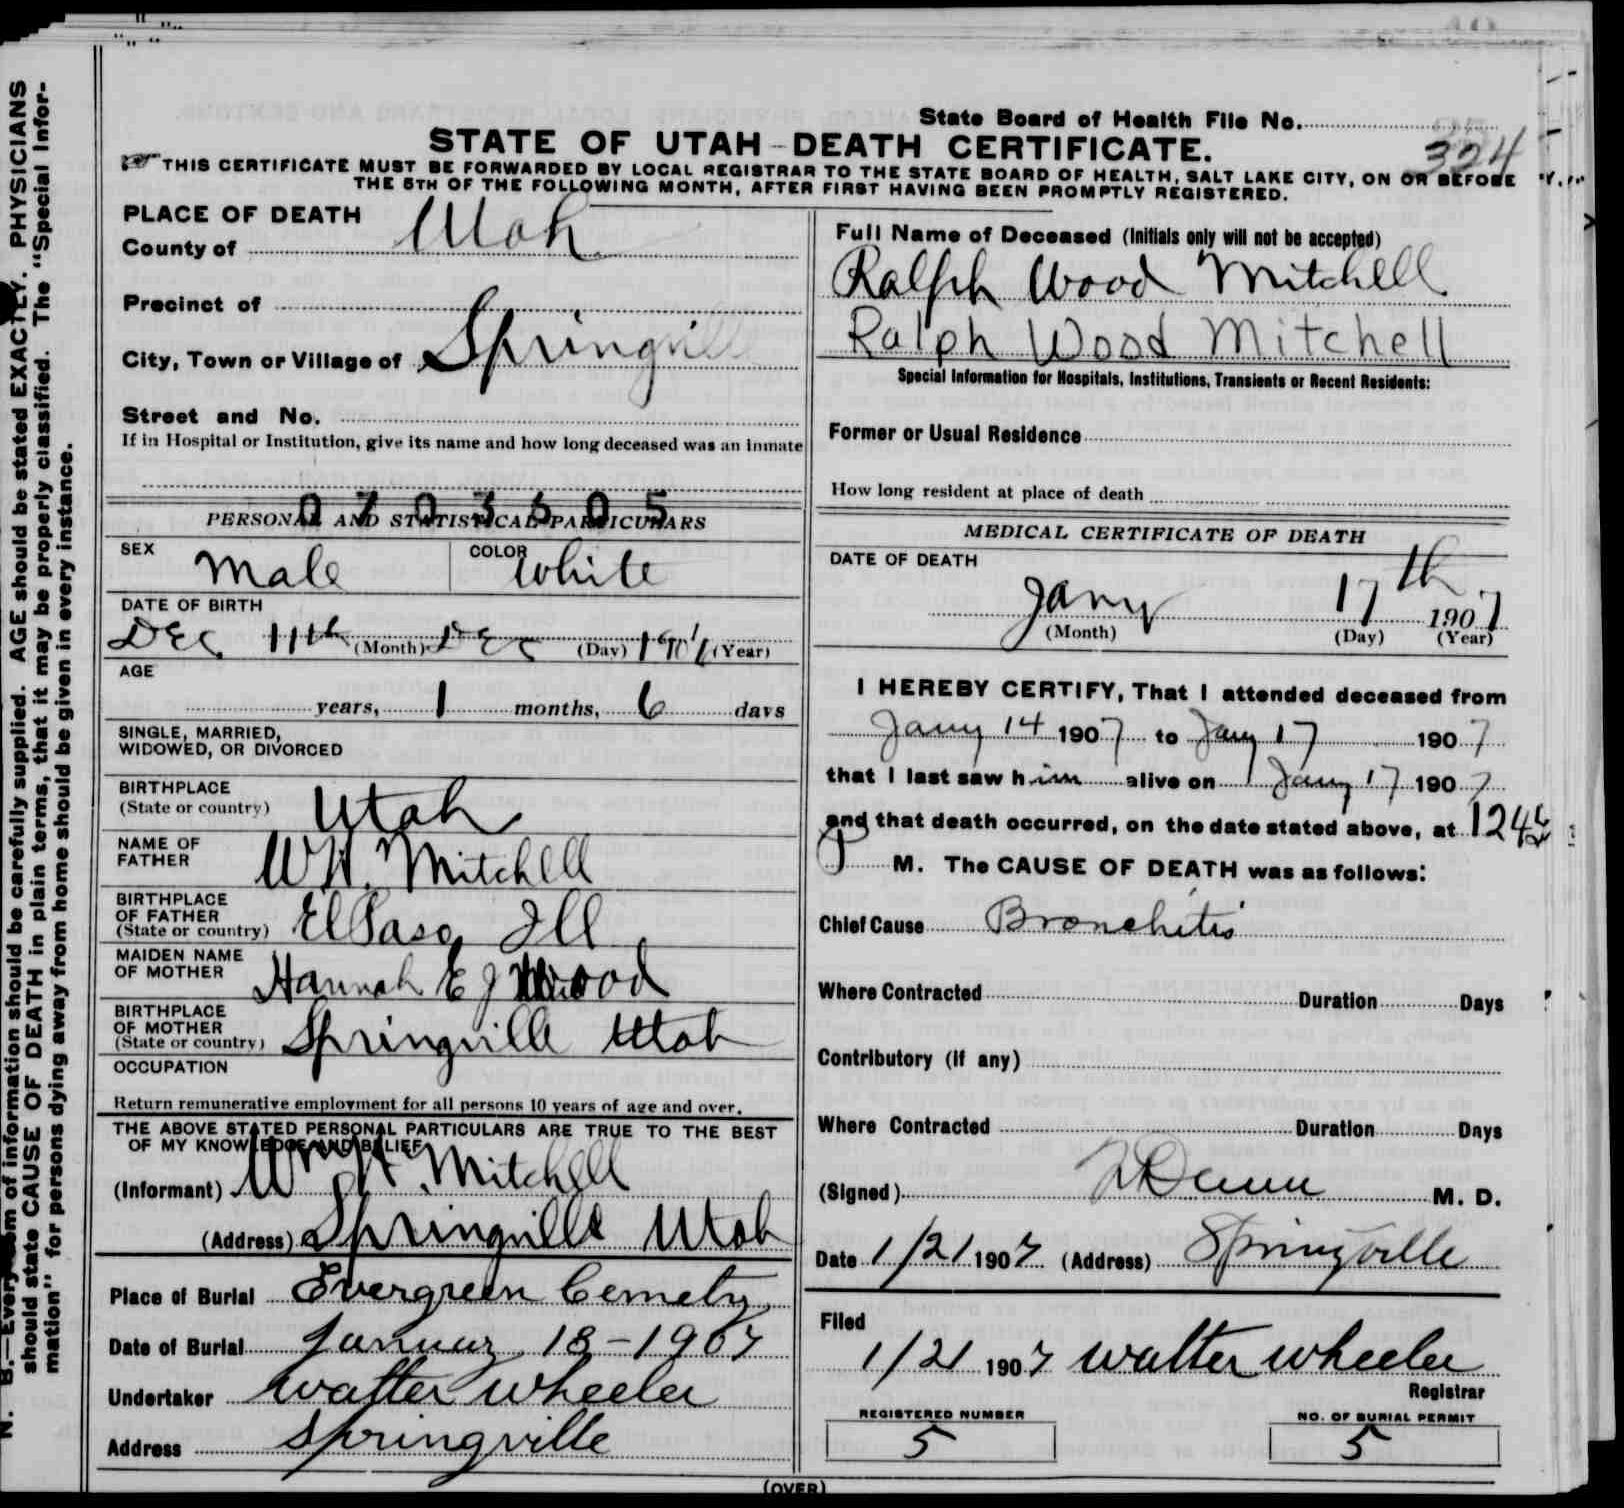 State Board of Health File No.
324
STATE OF UTAH - DEATH CERTIFICATE.
THIS CERTIFICATE MUST BE FORWARDED BY LOCAL REGISTRAR TO THE STATE BOARD OF HEALTH, SALT LAKE CITY, ON OR BEFORE
THE 5TH OF THE FOLLOWING MONTH, AFTER FIRST HAVING BEEN PROMPTLY REGISTERED.
PLACE OF DEATH
County of Utah
Precinct of
City, Town or Village of Springville
Street and No.
If in Hospital or Institution, give its name and how long deceased was an inmate
0703605
PERSONAL AND STATISTICAL PARTICULARS
SEX Male COLOR White
DATE OF BIRTH
Dec 11th (Month) Dec (Day) (Year)
AGE
years, 1 months, 6 days
SINGLE, MARRIED,
WIDOWED, OR DIVORCED
BIRTHPLACE
(State or country) Utah
NAME OF
FATHER W.H. Mitchell
BIRTHPLACE
OF FATHER
(State or country) El Paso Ill
MAIDEN NAME
OF MOTHER Hannah E J Wood
BIRTHPLACE
OF MOTHER
(State or country) Springville Utah
OCCUPATION
Return remunerative employment for all persons 10 years of age and over.
THE ABOVE STATED PERSONAL PARTICULARS ARE TRUE TO THE BEST
OF MY KNOWLEDGE AND BELIEF
(Informant) Wm H. Mitchell
(Address) Springville Utah
Place of Burial Evergreen Cemety
Date of Burial Januay 18-1907
Undertaker Walter Wheeler
Address Springville
Full Name of Deceased (Initials only will not be accepted)
Ralph Wood Mitchell
Ralph Wood Mitchell
Special Information for Hospitals, Institutions, Transients or Recent Residents:
Former or Usual Residence
How long resident at place of death
MEDICAL CERTIFICATE OF DEATH
DATE OF DEATH
Jany 17th 1907
(Month) (Day) (Year)
I HEREBY CERTIFY, That I attended deceased from
Jany 14 1907 to Jany 17 1907
that I last saw him alive on Jany 17 1907
and that death occurred, on the date stated above, at
P M. The CAUSE OF DEATH was as follows:
Chief Cause Bronchitis
Where Contracted Duration Days
Contributory (if any)
Where Contracted Duration Days
(Signed) Dunn M. D.
Date 1/21 1907 (Address) Springville
Filed
1/21 1907 Walter Wheeler
Registrar
REGISTERED NUMBER
5
NO. OF BURIAL PERMIT
5
(OVER)
N. B.—Every item of information should be carefully supplied. AGE should be stated EXACTLY. PHYSICIANS
should state CAUSE OF DEATH in plain terms, that it may be properly classified. The "Special Infor-
mation" for persons dying away from home should be given in every instance.